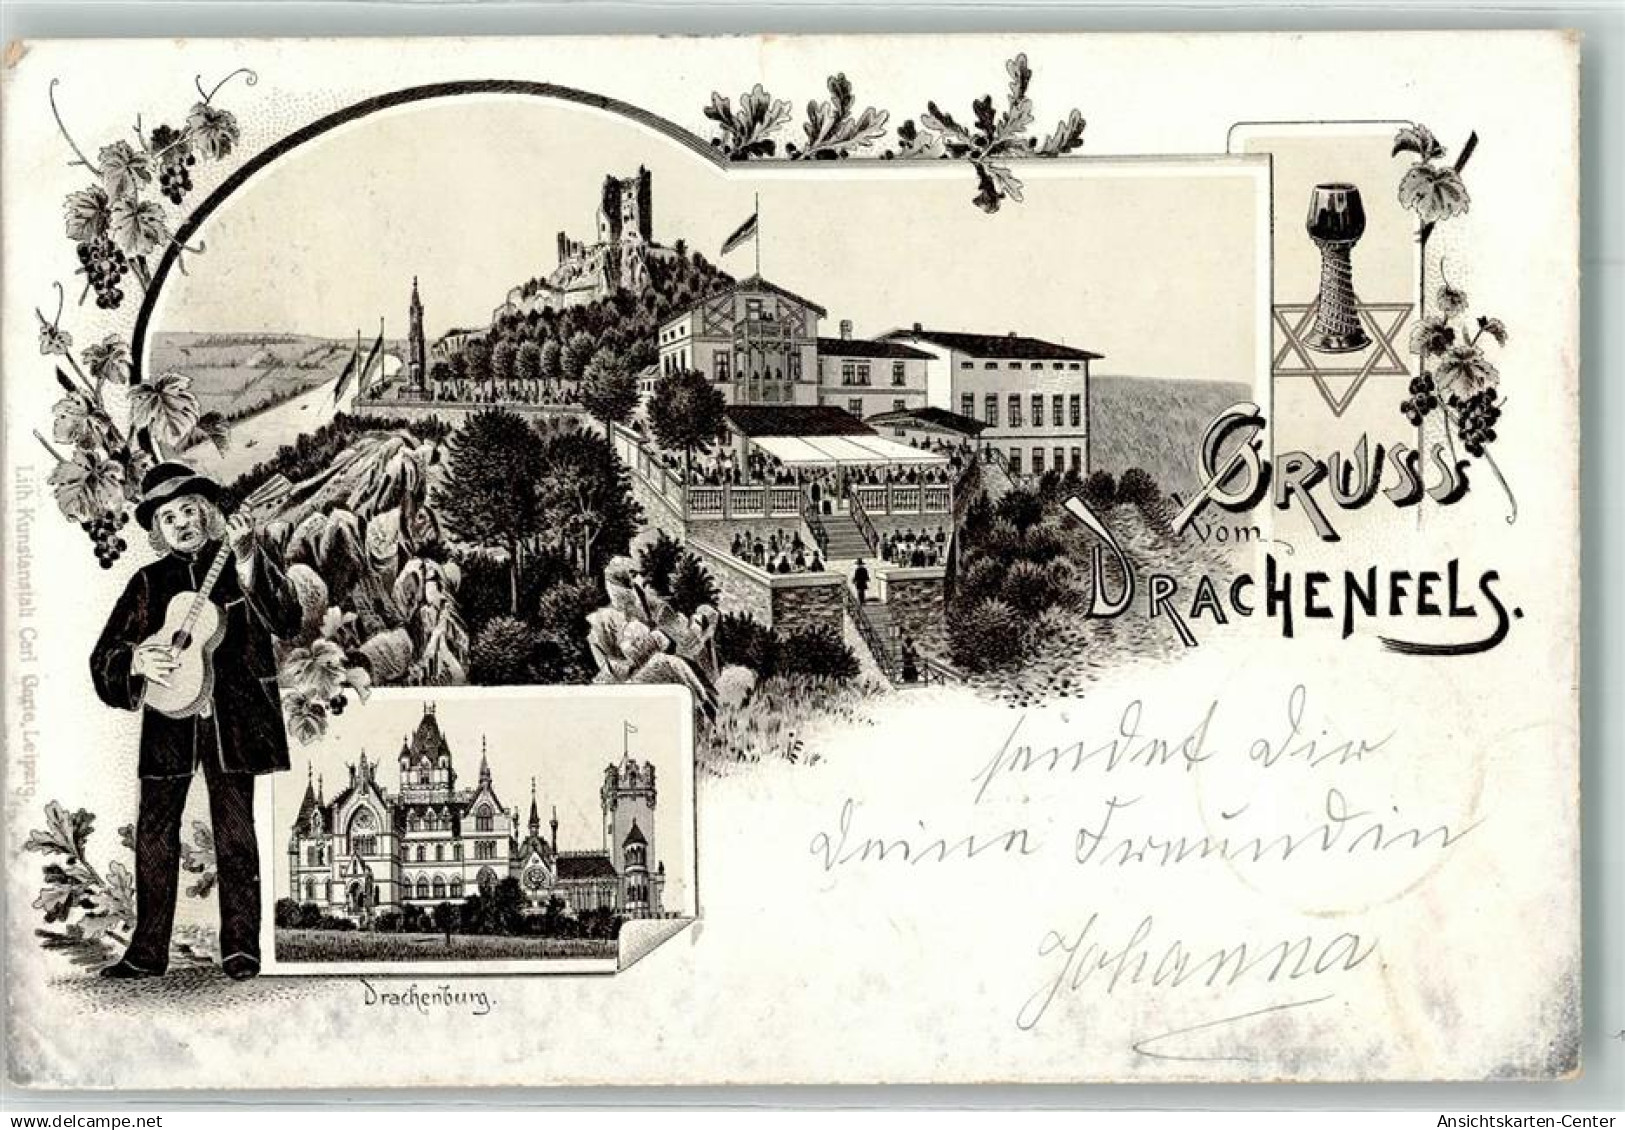 GRUSS
vom
DRACHENFELS.
sendet Dir
Deine Freundin
Johanna
Drachenburg.
Lith. Kunstanstalt Carl Garte, Leipzig.
Ansichtskarten-Center